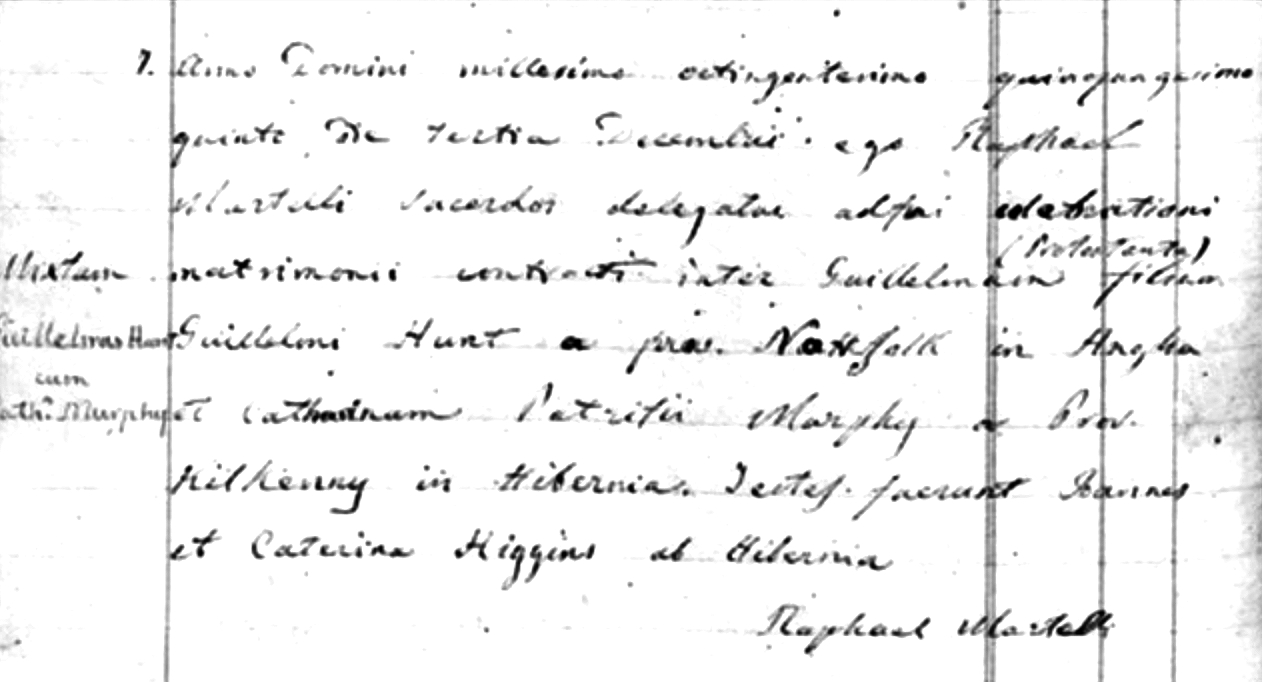 7. Anno Domini millesimo octingentesimo quinquangesimo
quinto Die tertia Decembris. ego Raphael
Martelli sacerdos delegatus adfui celebrationi
(Protestante)
Mixtum matrimonii contracti inter Guillelmum filium
Guillelmus Hunt Guillelmi Hunt a prov. Nottfolk in Anglia
cum
Cath.ª Murphy et Catharinam Patritii Murphy a Prov.
Kilkenny in Hibernia. Testes fuerunt Joannes
et Caterina Higgins ab Hibernia
Raphael Martelli